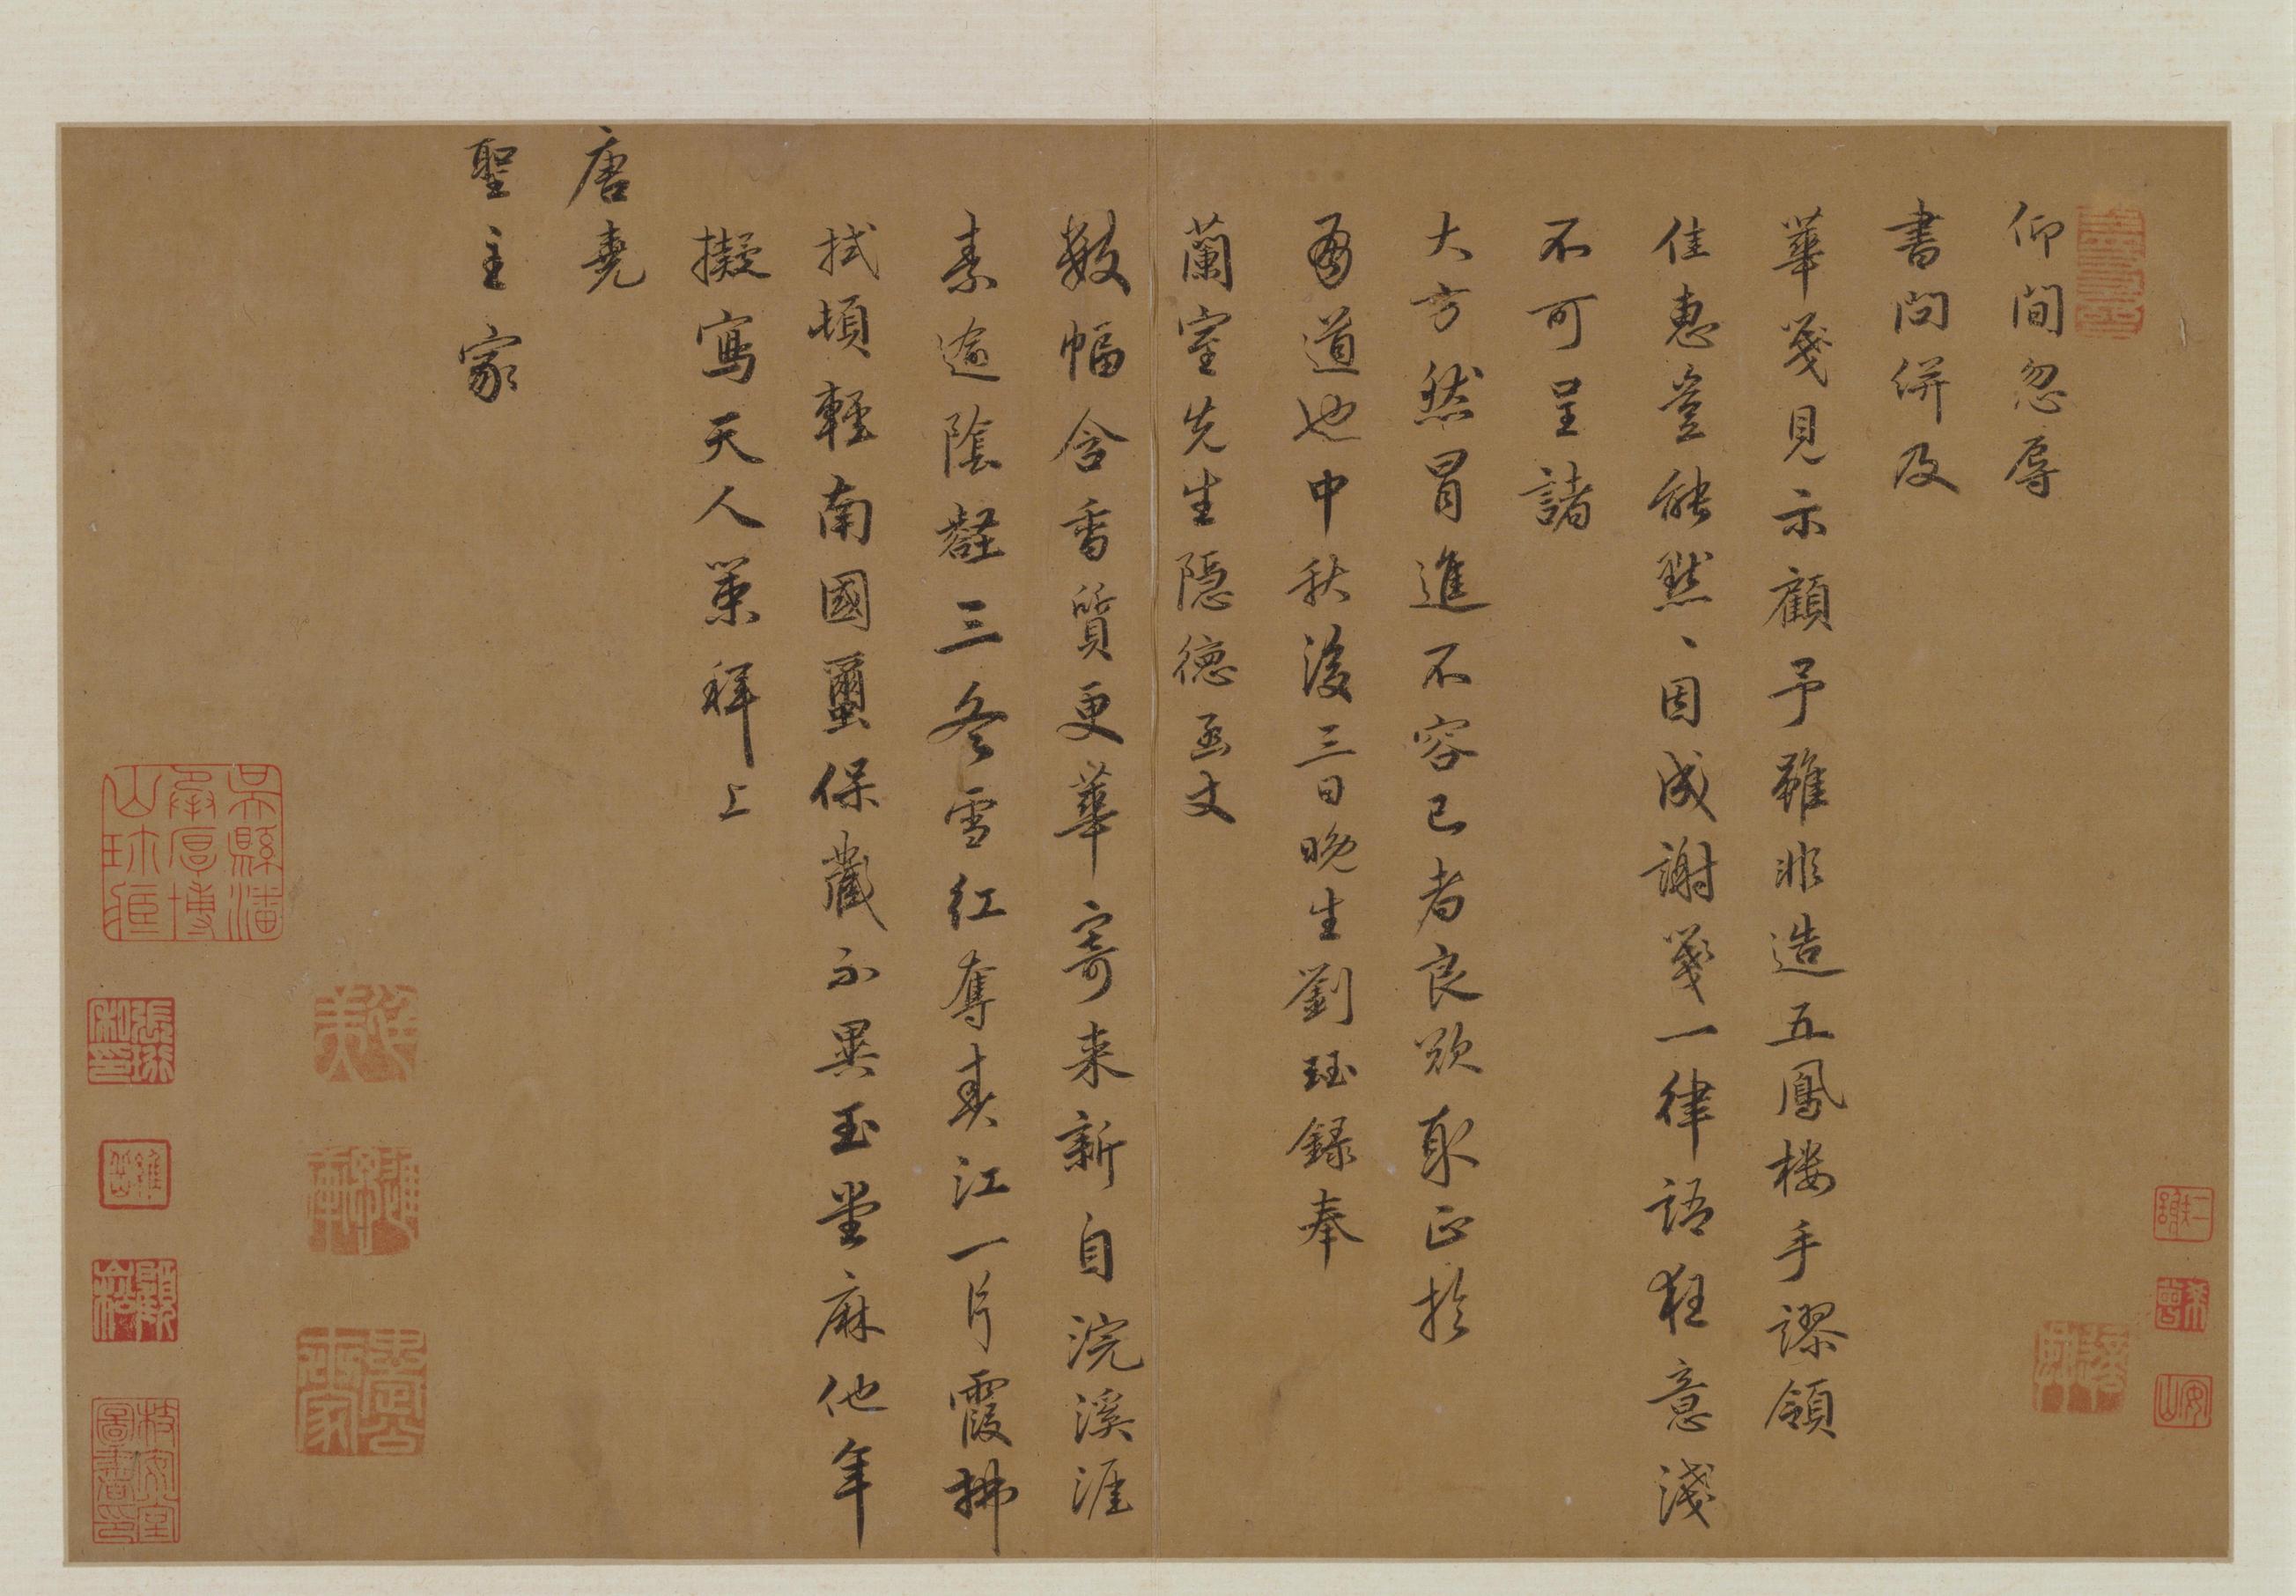 仰間忽辱
書問併及
華箋見示顧予雖非造五鳳樓手謬領
佳惠豈能默、因成謝箋一律語狂意淺
不可呈諸
大方然冒進不容已者良欲取正於
有道也中秋後三日晚生劉珏錄奉
蘭室先生隱德函丈
數幅含香質更華寄来新自浣溪涯
素逾陰壑三冬雪紅奪春江一片霞拂
拭頓輕南國蠒保藏不異玉堂麻他年
擬寫天人策拜上
唐堯
聖主家
吳縣潘承厚博山珍藏